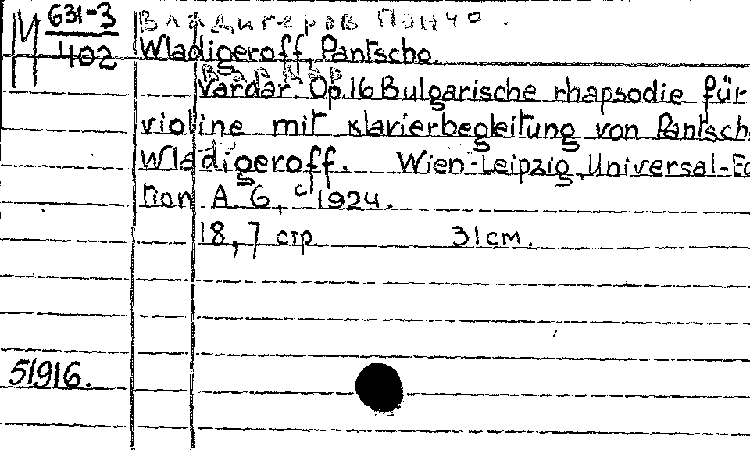 М 631-3
402
Владигеров Панчо.
Wladigeroff, Pantscho.
Вардар
Vardar. Op.16 Bulgarische rhapsodie für
violine mit klavierbegleitung von Pantsch
Wladigeroff. Wien-Leipzig, Universal-Ed
tion A G, c1924.
18, 7 стр 31 см.
51916.